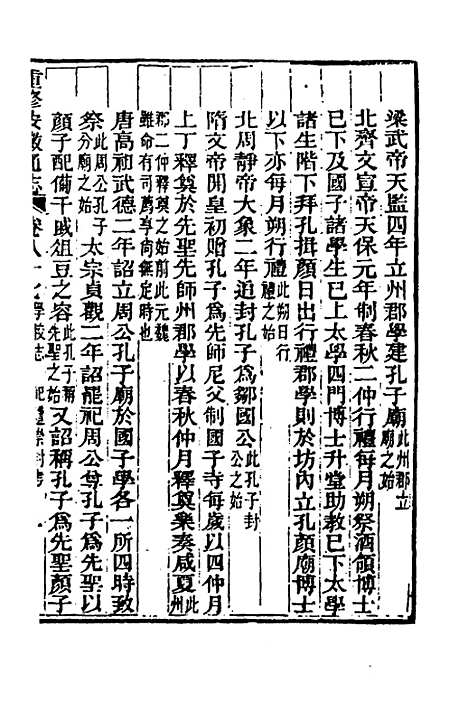 梁武帝天監四年立州郡學建孔子廟此州郡立廟之始
北齊文宣帝天保元年制春秋二仲行禮每月朔祭酒領博士
已下及國子諸學生已上太學四門博士升堂助教已下太學
諸生階下拜孔揖顏日出行禮郡學則於坊內立孔顏廟博士
以下亦每月朔行禮此朔日行禮之始
北周靜帝大象二年追封孔子為鄒國公此孔子封公之始
隋文帝開皇初贈孔子為先師尼父制國子寺每歲以四仲月
上丁釋奠於先聖先師州郡學以春秋仲月釋奠樂奏咸夏此州
郡二仲釋奠之始前此元魏雖命有司薦享尚無定時也
唐高祖武德二年詔立周公孔子廟於國子學各一所四時致
祭此周公孔子分廟之始太宗貞觀二年詔罷祀周公尊孔子為先聖以
顏子配備干戚俎豆之容此孔子稱先聖之始又詔稱孔子為先聖顏子
重修安徽通志 卷八十七學校志